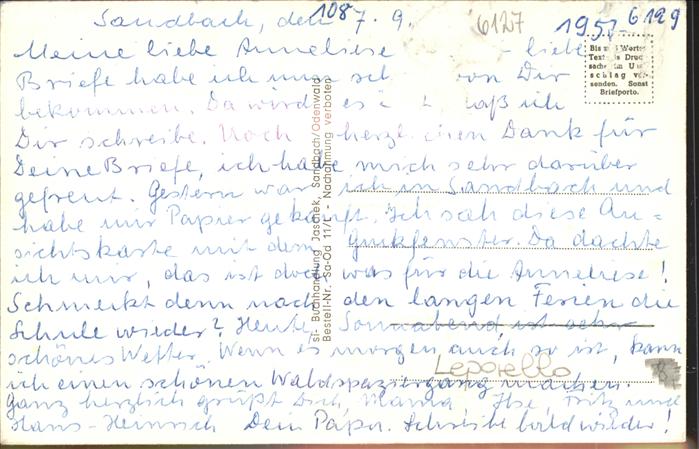 Sandbach, den 7. 9. 1957
108
6127
6129
Meine liebe Anneliese - liebe
Briefe habe ich nun von Dir
bekommen. Da wird es daß ich
Dir schreibe. Noch herzlichen Dank für
Deine Briefe, ich habe mich sehr darüber
gefreut. Gestern war ich in Sandbach und
habe mir Papier gekauft. Ich sah diese An=
sichtskarte mit dem Guckfenster. Da dachte
ich mir, das ist doch was für die Anneliese!
Schmeckt denn nach den langen Ferien die
Schule wieder? Heute, Sonnabend, ist sehr
schönes Wetter. Wenn es morgen auch so ist, kann
ich einen schönen Waldspaziergang machen.
Ganz herzlich grüßt Dich, Mama, Ilse, Fritz und
Hans-Heinrich Dein Papa. Schreibe bald wieder!
Leporello
Bis Worte
Text als Druck
sache im Um
schlag ver-
senden. Sonst
Briefporto.
Buchhandlung Jaschek, Sandbach/Odenwald
Bestell-Nr. Sa-Od 11/L - Nachahmung verboten